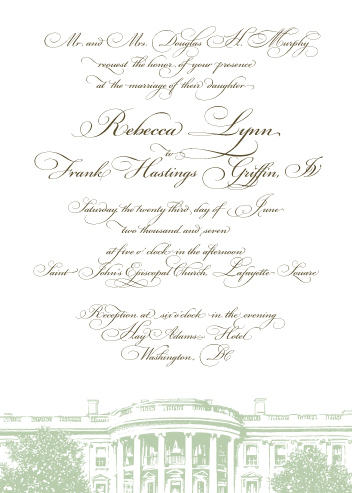 Mr. and Mrs. Douglas H. Murphy
request the honor of your presence
at the marriage of their daughter
Rebecca Lynn
to
Frank Hastings Griffin, IV
Saturday, the twenty third, day of June
two thousand and seven
at five o'clock in the afternoon
Saint John's Episcopal Church, Lafayette Square
Reception at six o'clock in the evening
Hay Adams Hotel
Washington, DC